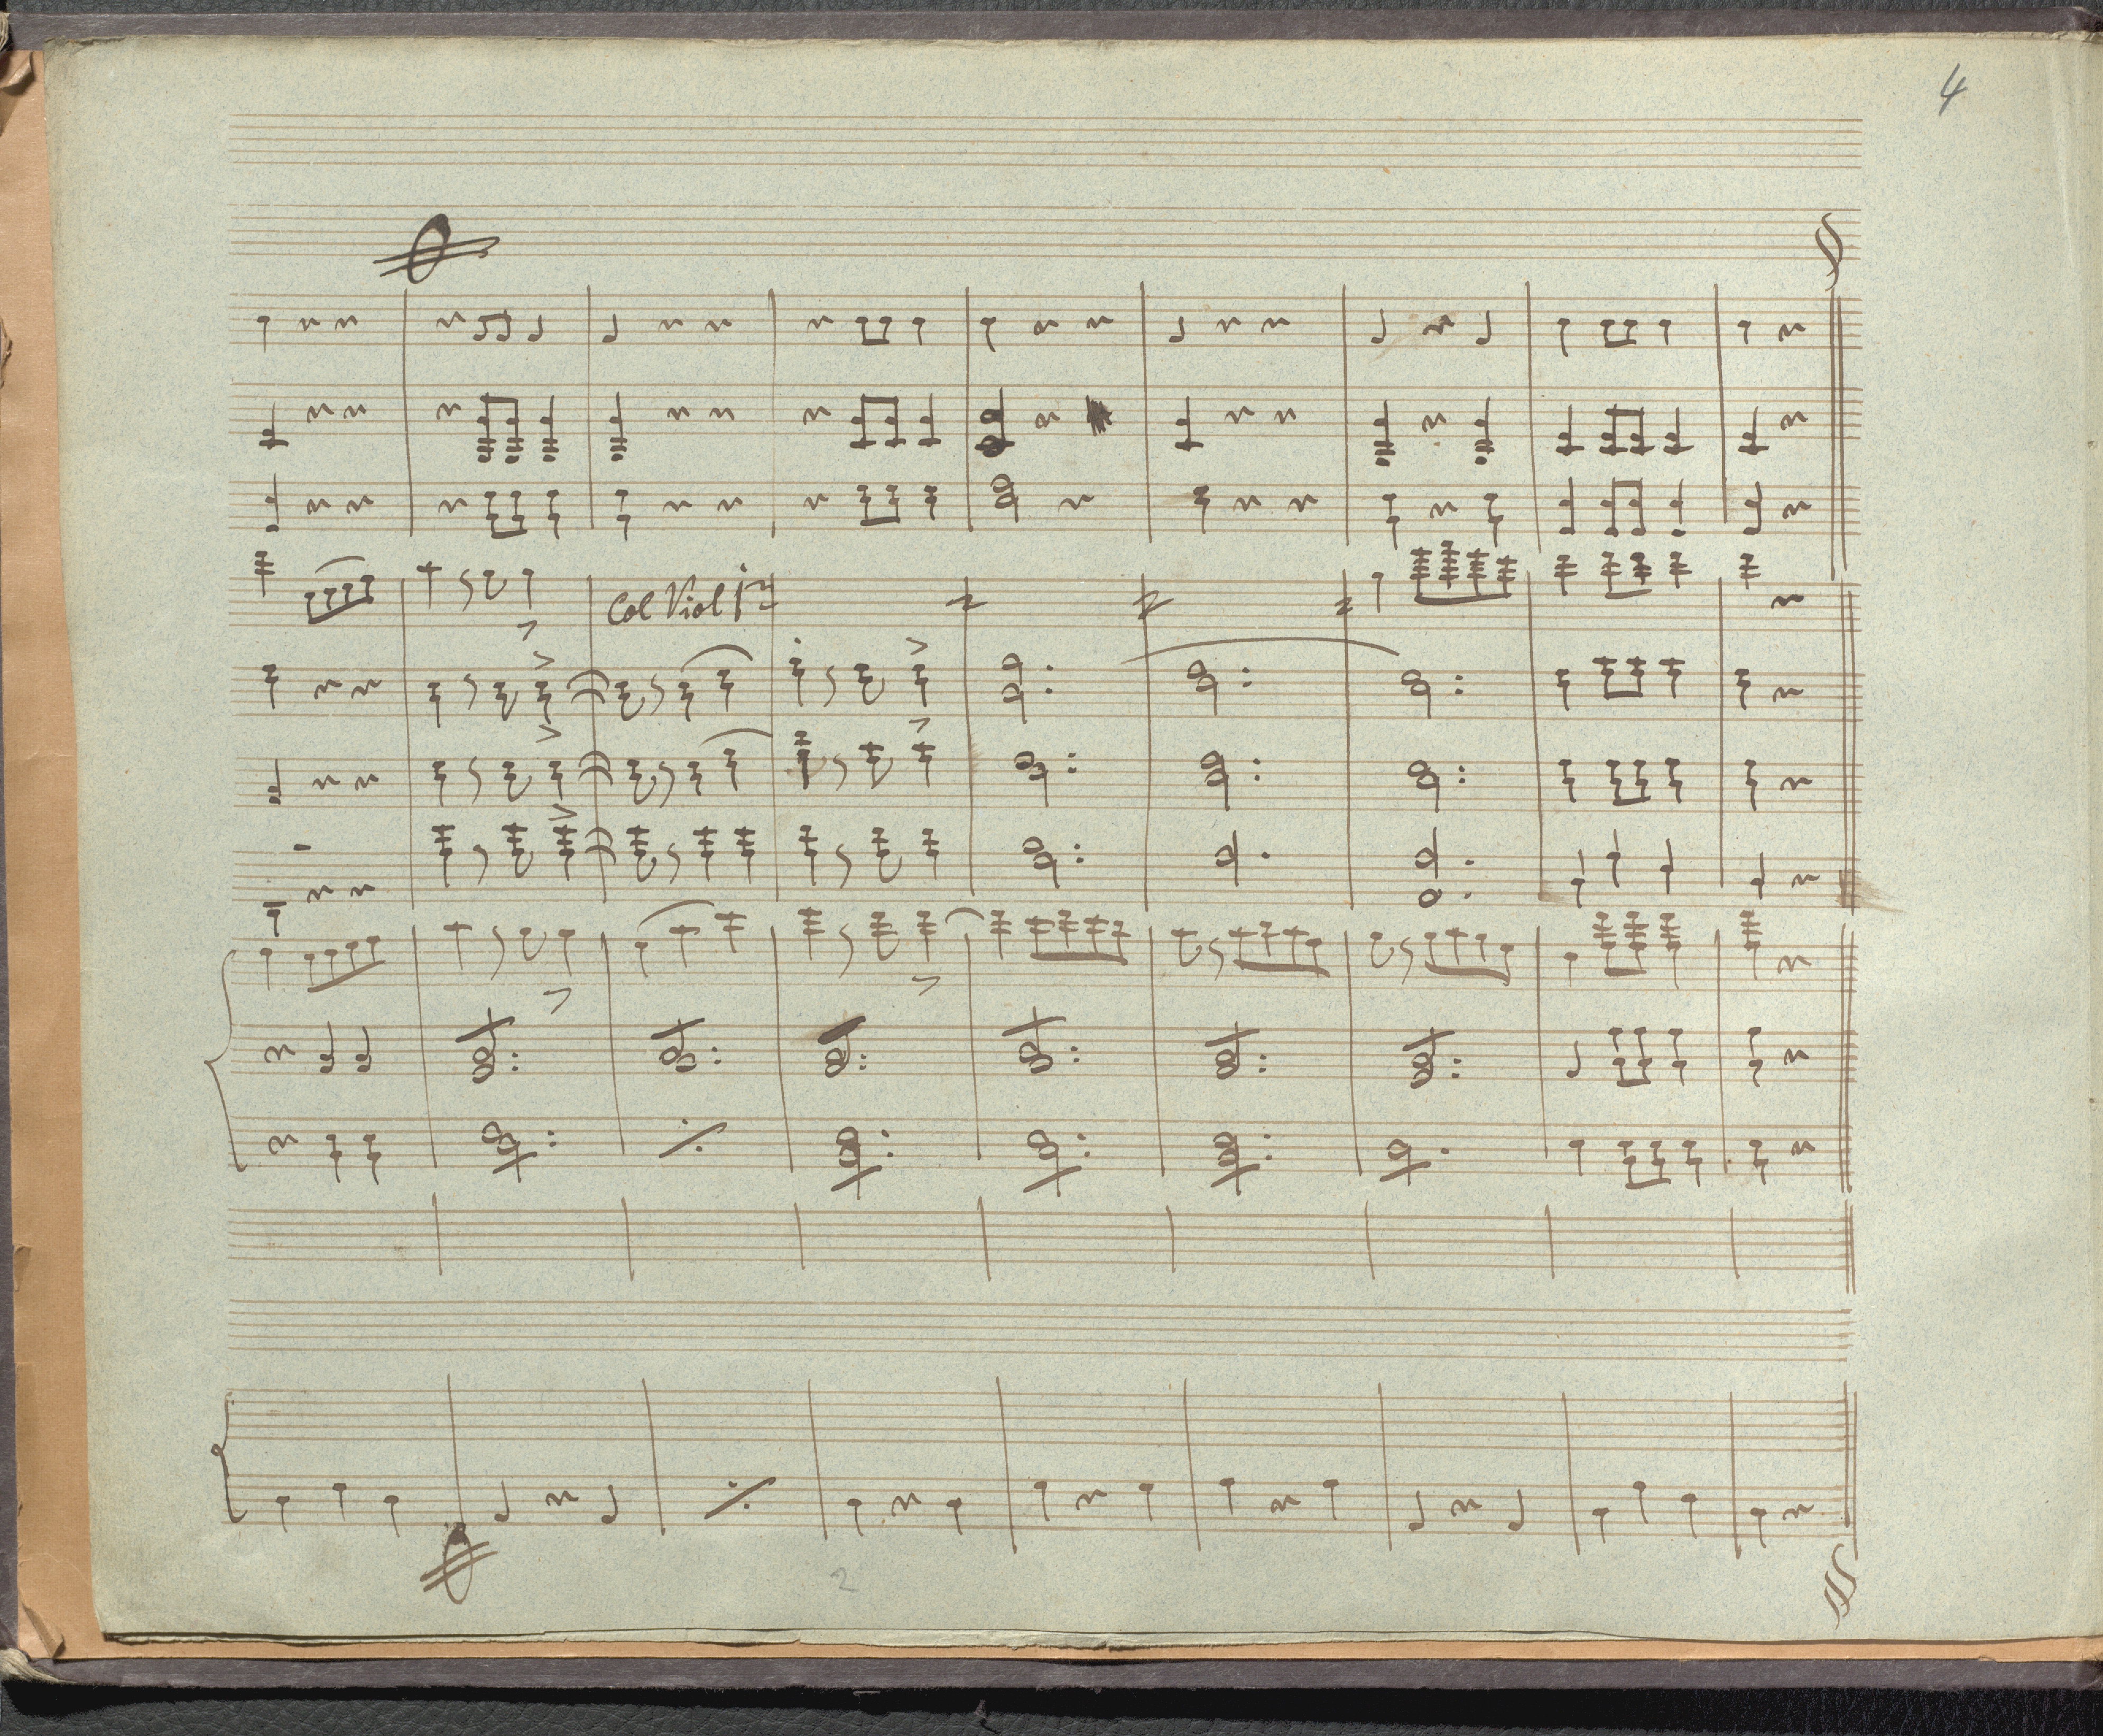 4
Col Viol 1º
2